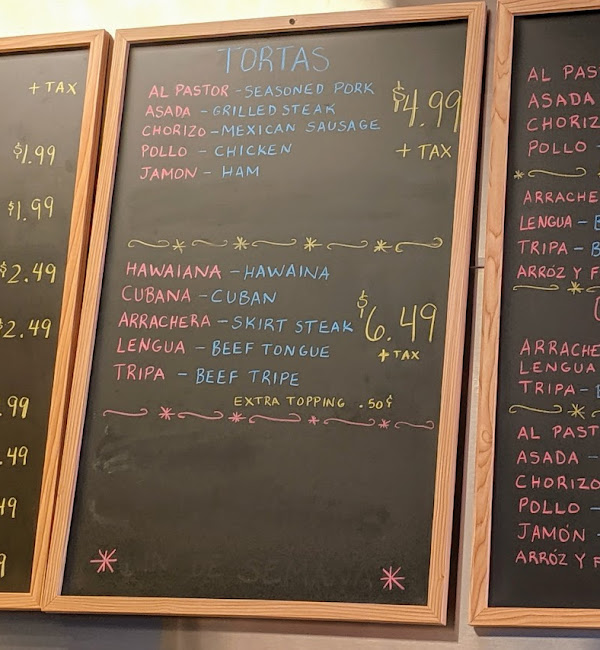 + TAX
$1.99
$1.99
$2.49
$2.49
.99
.49
49
9
TORTAS
AL PASTOR - SEASONED PORK
ASADA - GRILLED STEAK
CHORIZO - MEXICAN SAUSAGE
POLLO - CHICKEN
JAMON - HAM
$4.99
+ TAX
HAWAIANA - HAWAINA
CUBANA - CUBAN
ARRACHERA - SKIRT STEAK
LENGUA - BEEF TONGUE
TRIPA - BEEF TRIPE
$6.49
+ TAX
EXTRA TOPPING .50¢
AL PAST
ASADA
CHORIZ
POLLO -
ARRACHER
LENGUA - B
TRIPA - B
ARRÓZ Y F
ARRACHE
LENGUA
TRIPA -
AL PAST
ASADA -
CHORIZO
POLLO -
JAMÓN -
ARRÓZ Y F